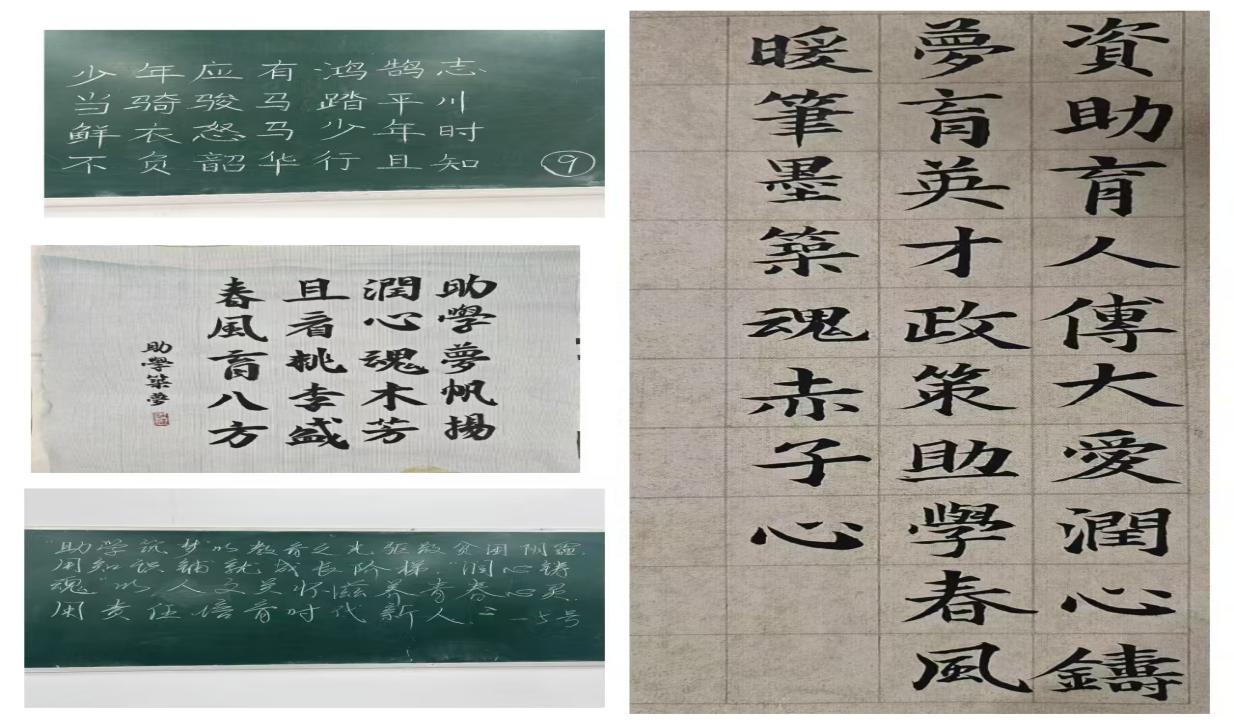 少年应有鸿鹄志
当骑骏马踏平川
鲜衣怒马少年时
不负韶华行且知
⑨
助學夢帆揚
潤心魂木芳
且看桃李盛
春風育八方
助學築夢
"助学筑梦"以教育之光驱散贫困阴霾,
用知识铺就成长阶梯."润心铸
魂"以人文关怀滋养青春心灵.
用责任培育时代新人.
一5号
資助育人傳大愛潤心鑄
夢育英才政策助學春風
暖筆墨築魂赤子心